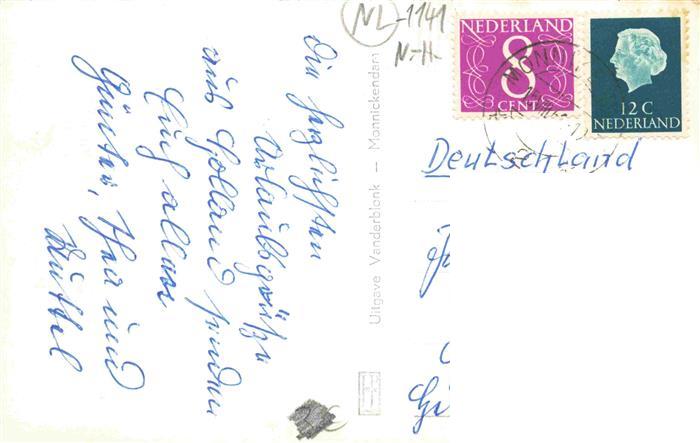 NL-1141
N-H.
NEDERLAND
8
CENT
12 C
NEDERLAND
MONNI
Deutschland
Die herzlichsten
Urlaubsgrüße
aus Holland senden
Euch allen
Günter, Thea und
Uitgave Vanderblonk — Monnickendam